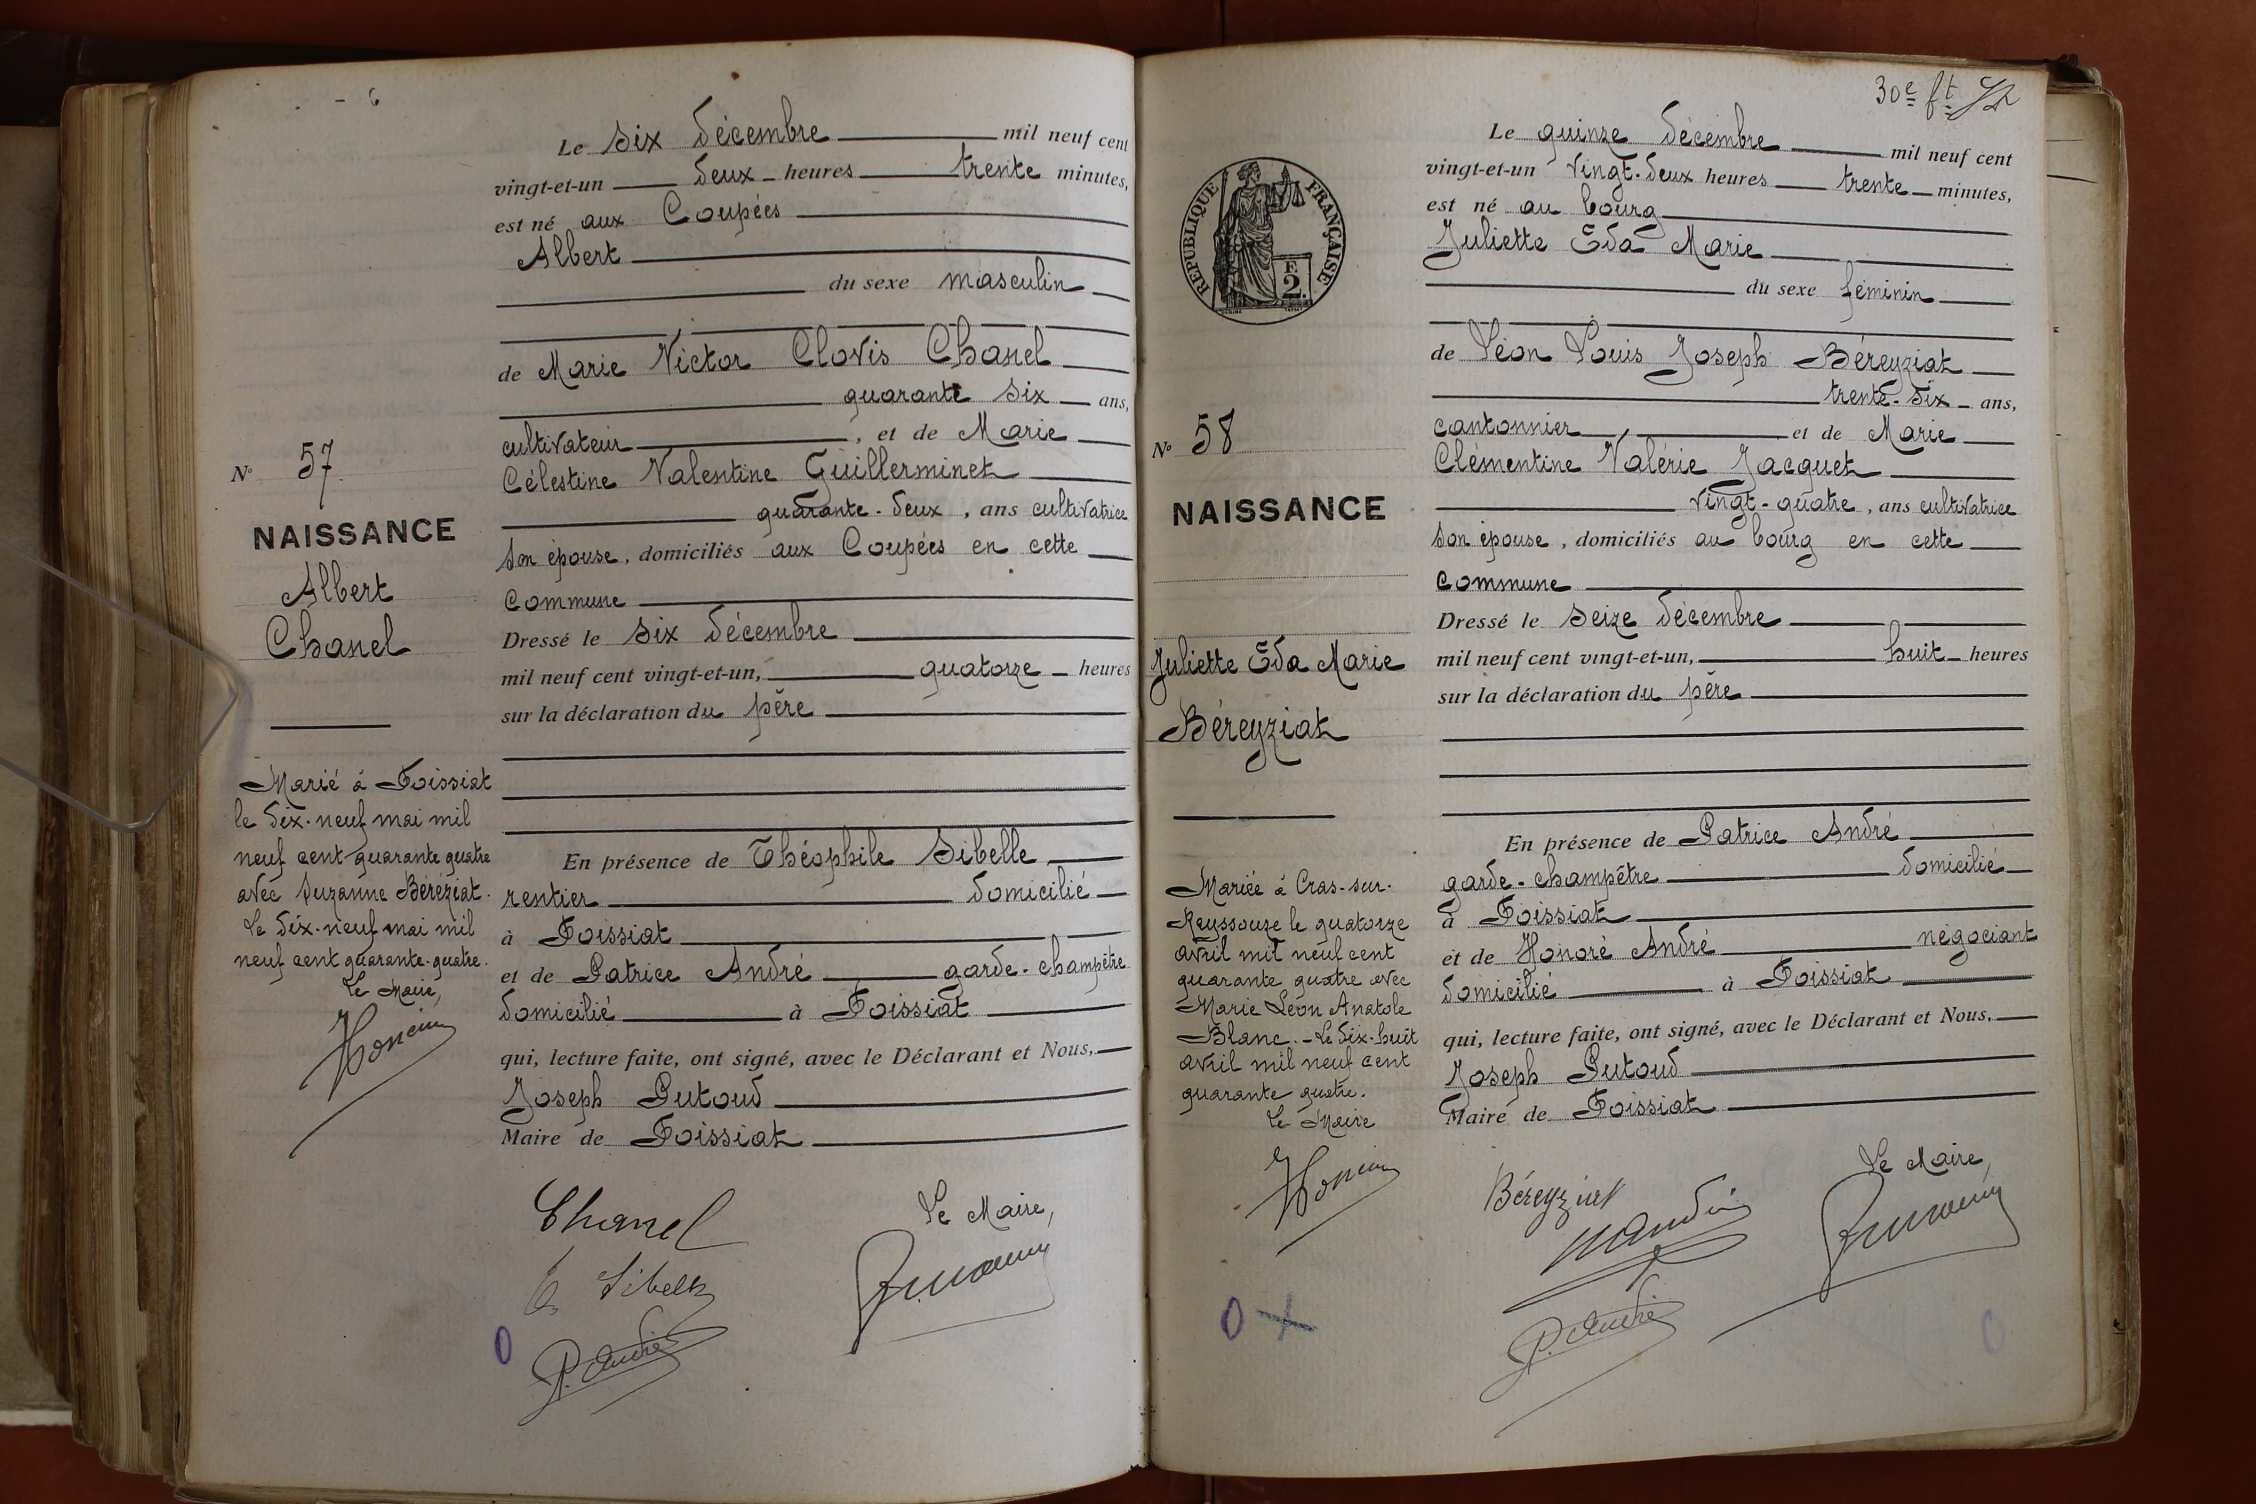 Le six décembre mil neuf cent
vingt-et-un deux heures trente minutes,
est né aux Coupées
Albert
du sexe masculin
de Marie Victor Clovis Chanel
quarante six ans,
cultivateur, et de Marie
Célestine Valentine Guillerminet
quarante-deux, ans cultivatrice
son épouse, domiciliés aux Coupées en cette
commune
Dressé le six décembre
mil neuf cent vingt-et-un, quatorze heures
sur la déclaration du père
En présence de Théophile Sibelle
rentier domicilié
à Foissiat
et de Patrice André garde-champêtre
domicilié à Foissiat
qui, lecture faite, ont signé, avec le Déclarant et Nous,
Joseph Putoud
Maire de Foissiat
Chanel
Le Maire,
Sibelle
P. André
No 57
NAISSANCE
Albert
Chanel
Marié à Foissiat
le dix-neuf mai mil
neuf cent quarante quatre
avec Suzanne Béréziat.
Le dix-neuf mai mil
neuf cent quarante-quatre.
Le Maire,
30e ft
Le quinze décembre mil neuf cent
vingt-et-un vingt-deux heures trente minutes,
est né au bourg
Juliette Eda Marie
du sexe féminin
de Léon Louis Joseph Béreyziat
trente-six ans,
cantonnier, et de Marie
Clémentine Valérie Jacquet
vingt-quatre, ans cultivatrice
son épouse, domiciliés au bourg en cette
commune
Dressé le seize décembre
mil neuf cent vingt-et-un, huit heures
sur la déclaration du père
En présence de Patrice André
garde-champêtre domicilié
à Foissiat
et de Honoré André négociant
domicilié à Foissiat
qui, lecture faite, ont signé, avec le Déclarant et Nous,
Joseph Putoud
Maire de Foissiat
Le Maire,
Béreyziat
P. André
RÉPUBLIQUE FRANÇAISE
F.
2.
No 58
NAISSANCE
Juliette Eda Marie
Béreyziat
Mariée à Cras-sur-
Reyssouze le quatorze
avril mil neuf cent
quarante quatre avec
Marie Léon Anatole
Blanc. - Le dix-huit
avril mil neuf cent
quarante quatre.
Le Maire